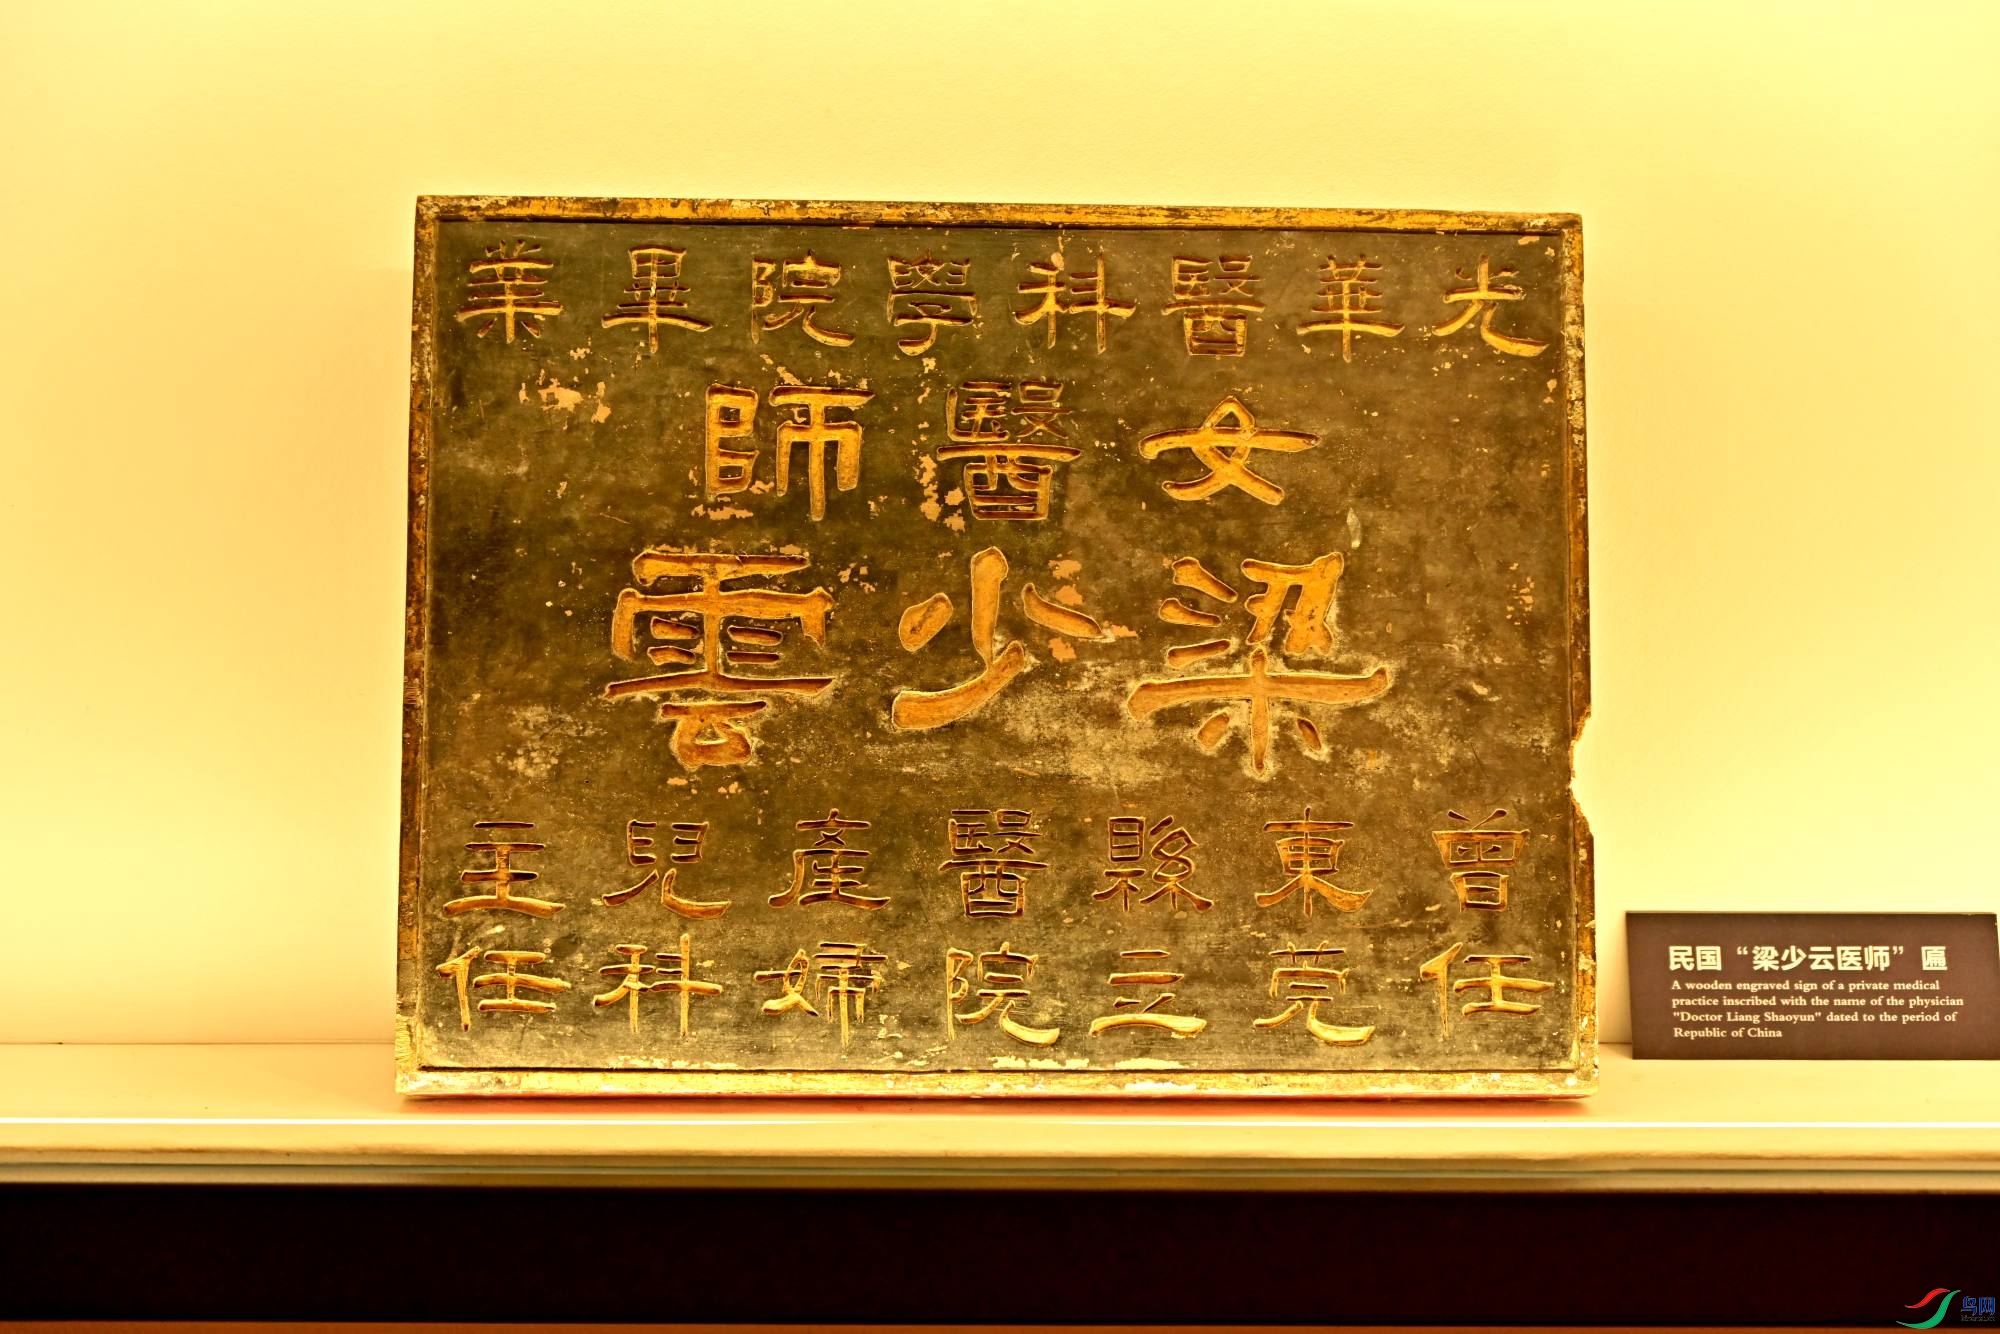 光華醫科學院畢業
女醫師
梁少雲
曾任
東莞
縣立
醫院
產婦
兒科
主任
民国“梁少云医师”匾
A wooden engraved sign of a private medical
practice inscribed with the name of the physician
"Doctor Liang Shaoyun" dated to the period of
Republic of China
鸟网